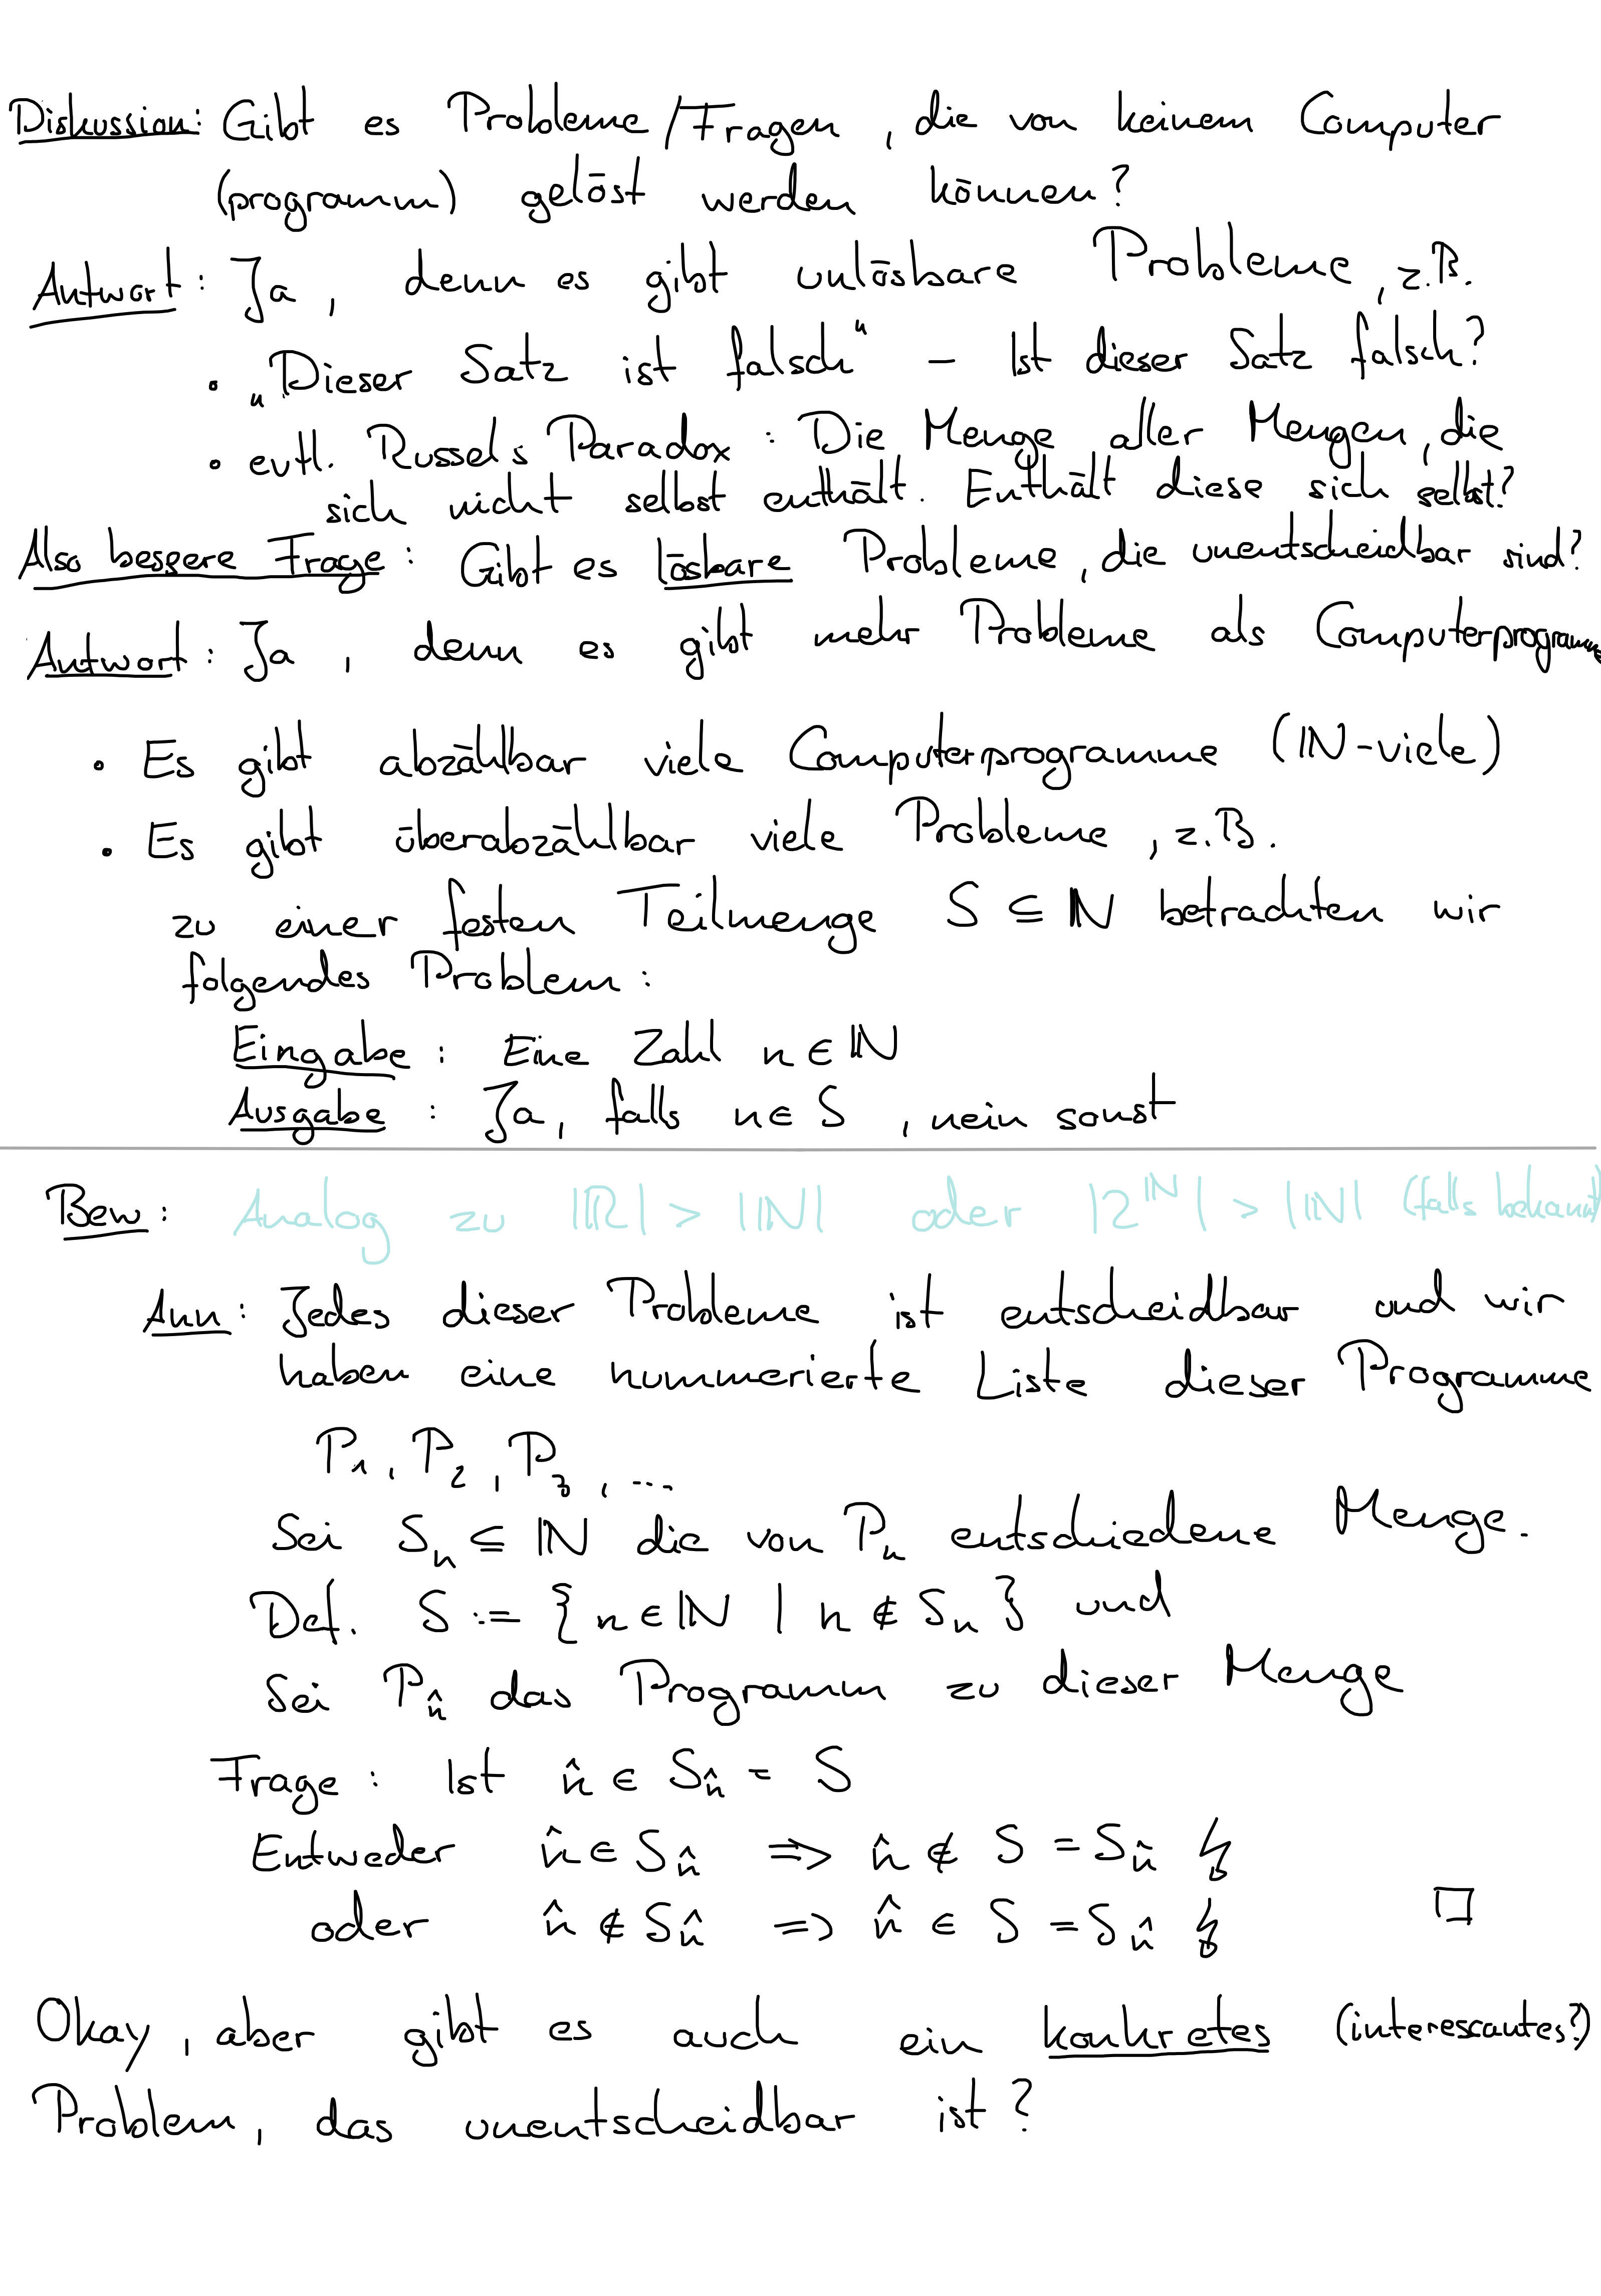 Diskussion: Gibt es Probleme/Fragen, die von keinem Computer
(programm) gelöst werden können?
Antwort: Ja, denn es gibt unlösbare Probleme, z.B.
• „Dieser Satz ist falsch" – Ist dieser Satz falsch?
• evtl. Russels Paradox: Die Menge aller Mengen, die
sich nicht selbst enthält. Enthält diese sich selbst?
Also bessere Frage: Gibt es lösbare Probleme, die unentscheidbar sind?
Antwort: Ja, denn es gibt mehr Probleme als Computerprogramme
• Es gibt abzählbar viele Computerprogramme (ℕ-viele)
• Es gibt überabzählbar viele Probleme, z.B.
zu einer festen Teilmenge S ⊆ ℕ betrachten wir
folgendes Problem:
Eingabe: Eine Zahl n ∈ ℕ
Ausgabe: Ja, falls n ∈ S, nein sonst
Bew: Analog zu |ℝ| > |ℕ| oder |2^ℕ| > |ℕ| (falls bekannt)
Ann: Jedes dieser Probleme ist entscheidbar und wir
haben eine nummerierte Liste dieser Programme
P₁, P₂, P₃, ...
Sei Sₙ ⊆ ℕ die von Pₙ entschiedene Menge.
Def. S := {n ∈ ℕ | n ∉ Sₙ} und
Sei P_n̂ das Programm zu dieser Menge
Frage: Ist n̂ ∈ S_n̂ = S
Entweder n̂ ∈ S_n̂ ⇒ n̂ ∉ S = S_n̂ ↯
oder n̂ ∉ S_n̂ ⇒ n̂ ∈ S = S_n̂ ↯ □
Okay, aber gibt es auch ein konkretes (interessantes?)
Problem, das unentscheidbar ist?